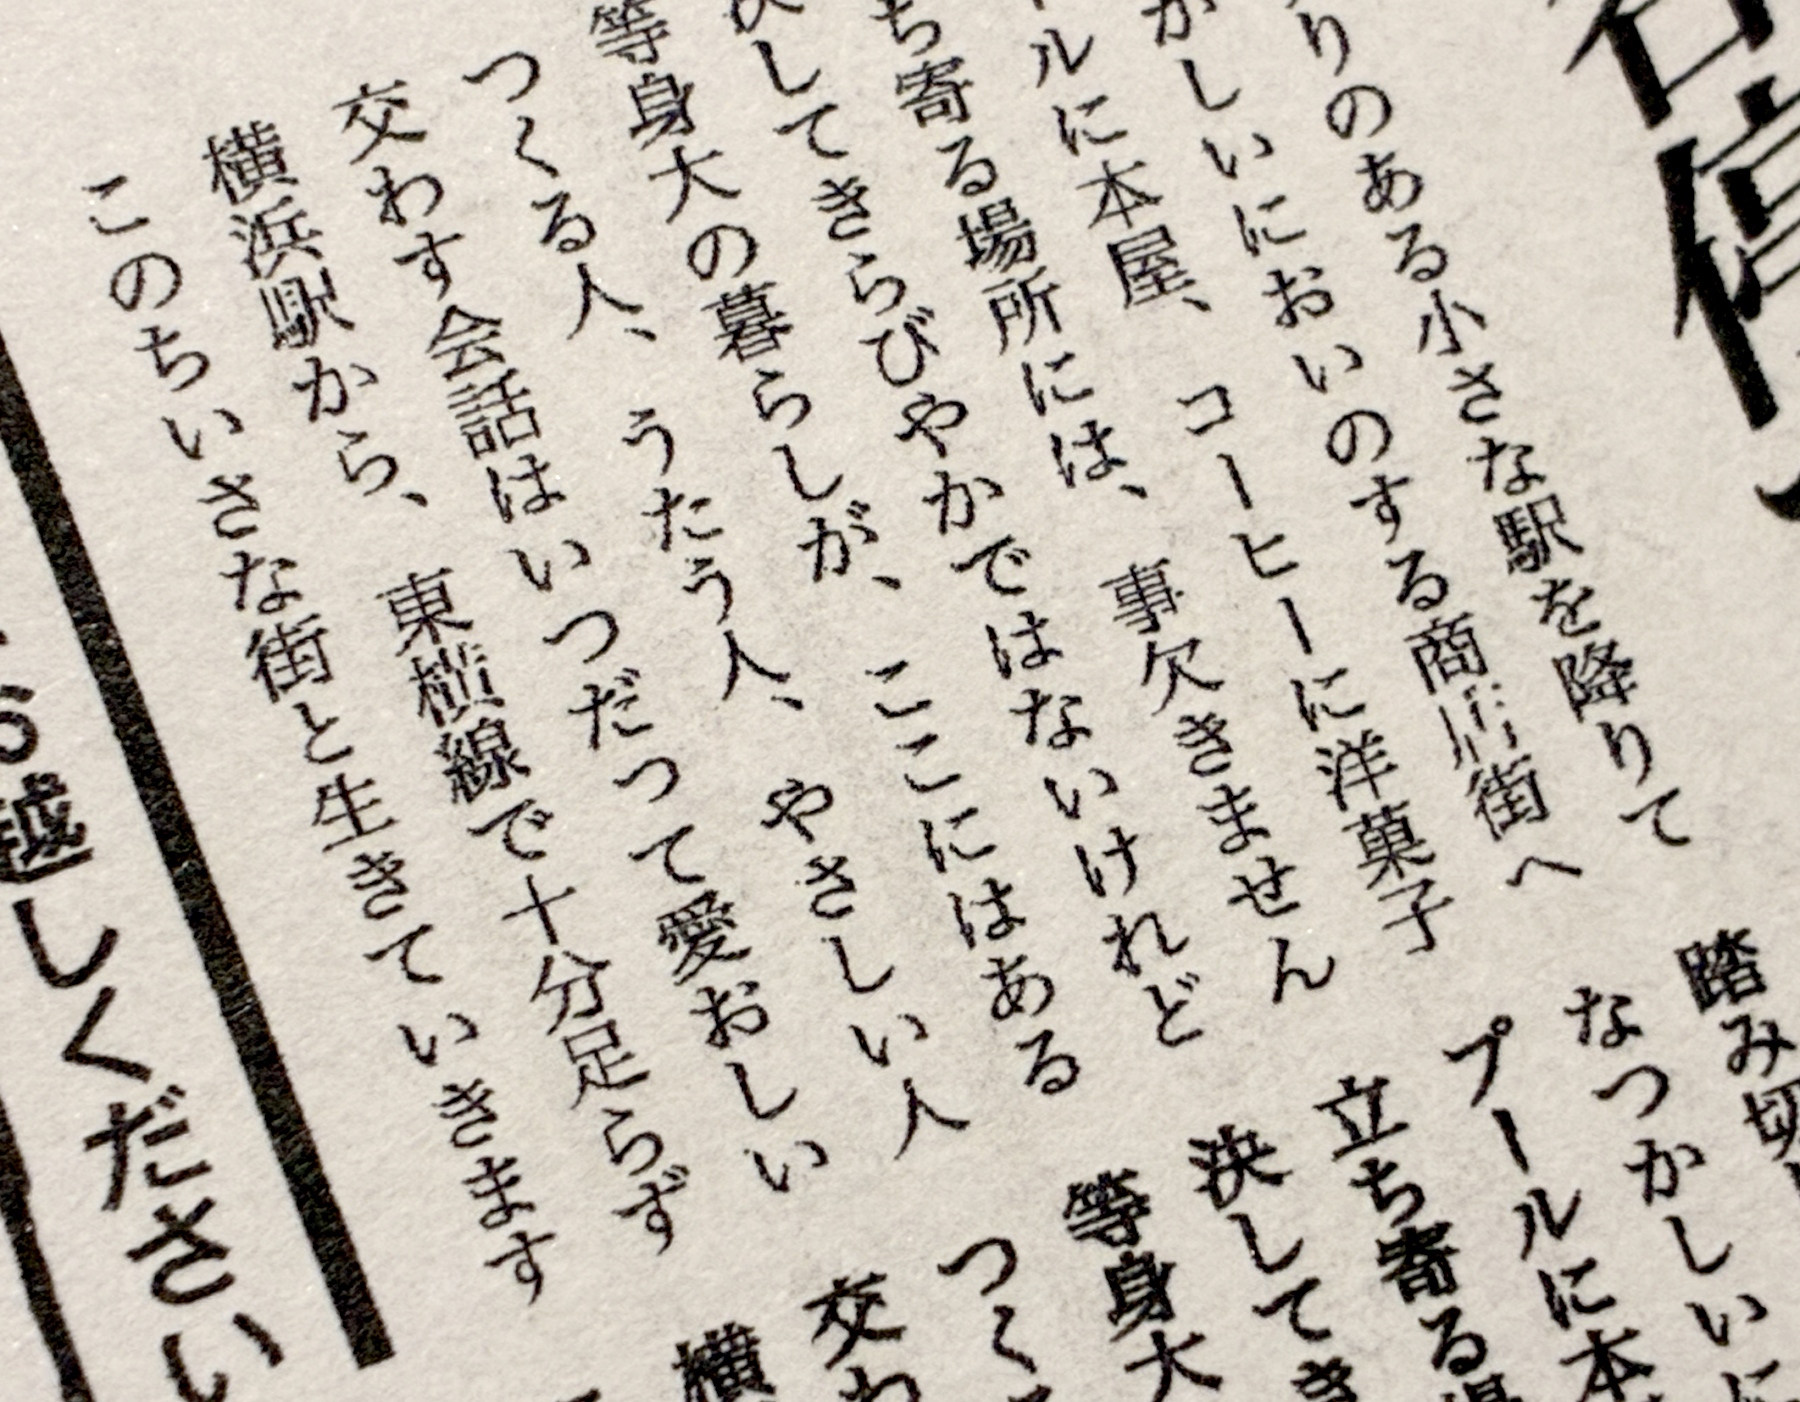 停
りのある小さな駅を降りて
かしいにおいのする商店街へ
ールに本屋、コーヒーに洋菓子
ち寄る場所には、事欠きません
してきらびやかではないけれど
等身大の暮らしが、ここにはある
つくる人、うたう人、やさしい人
交わす会話はいつだって愛おしい
横浜駅から、東横線で十分足らず
このちいさな街と生きていきます
踏み切
なつかしいに
プールに本
立ち寄る場
決してき
等身大
つく
交わ
横
越しください